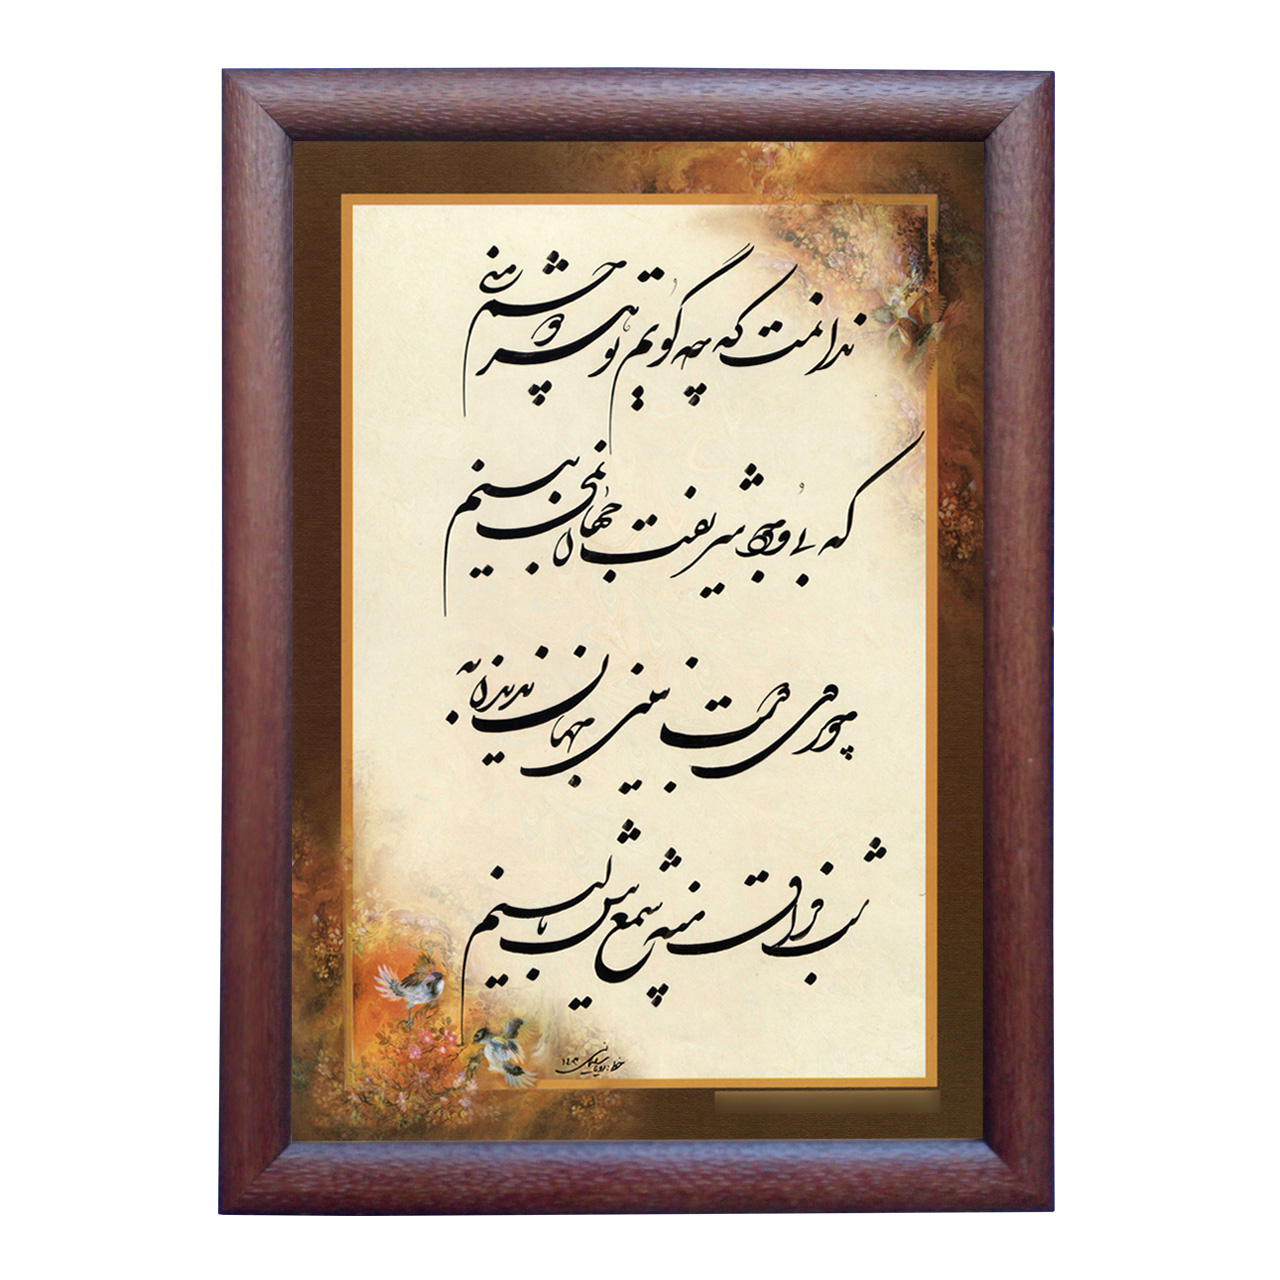 ندانمت که چه گویم تو هر دو چشم منی
که بی وجود شریفت جهان نمی بینم
چو روی دوست نبینی جهان ندیدن به
شب فراق منه شمع پیش بالینم
خط: